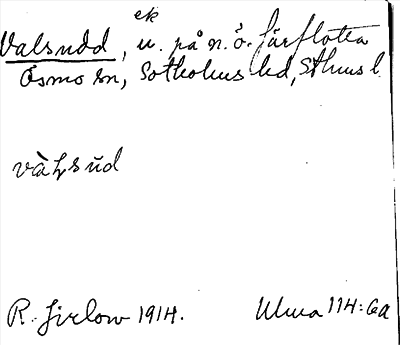 ek
Valsudd, u. på n. ö. Järflotta
Ösmo sn, Sotholms hd, Sthms l.
vàl̥sŭd
R. Jirlow 1914. Ulma 114:6a